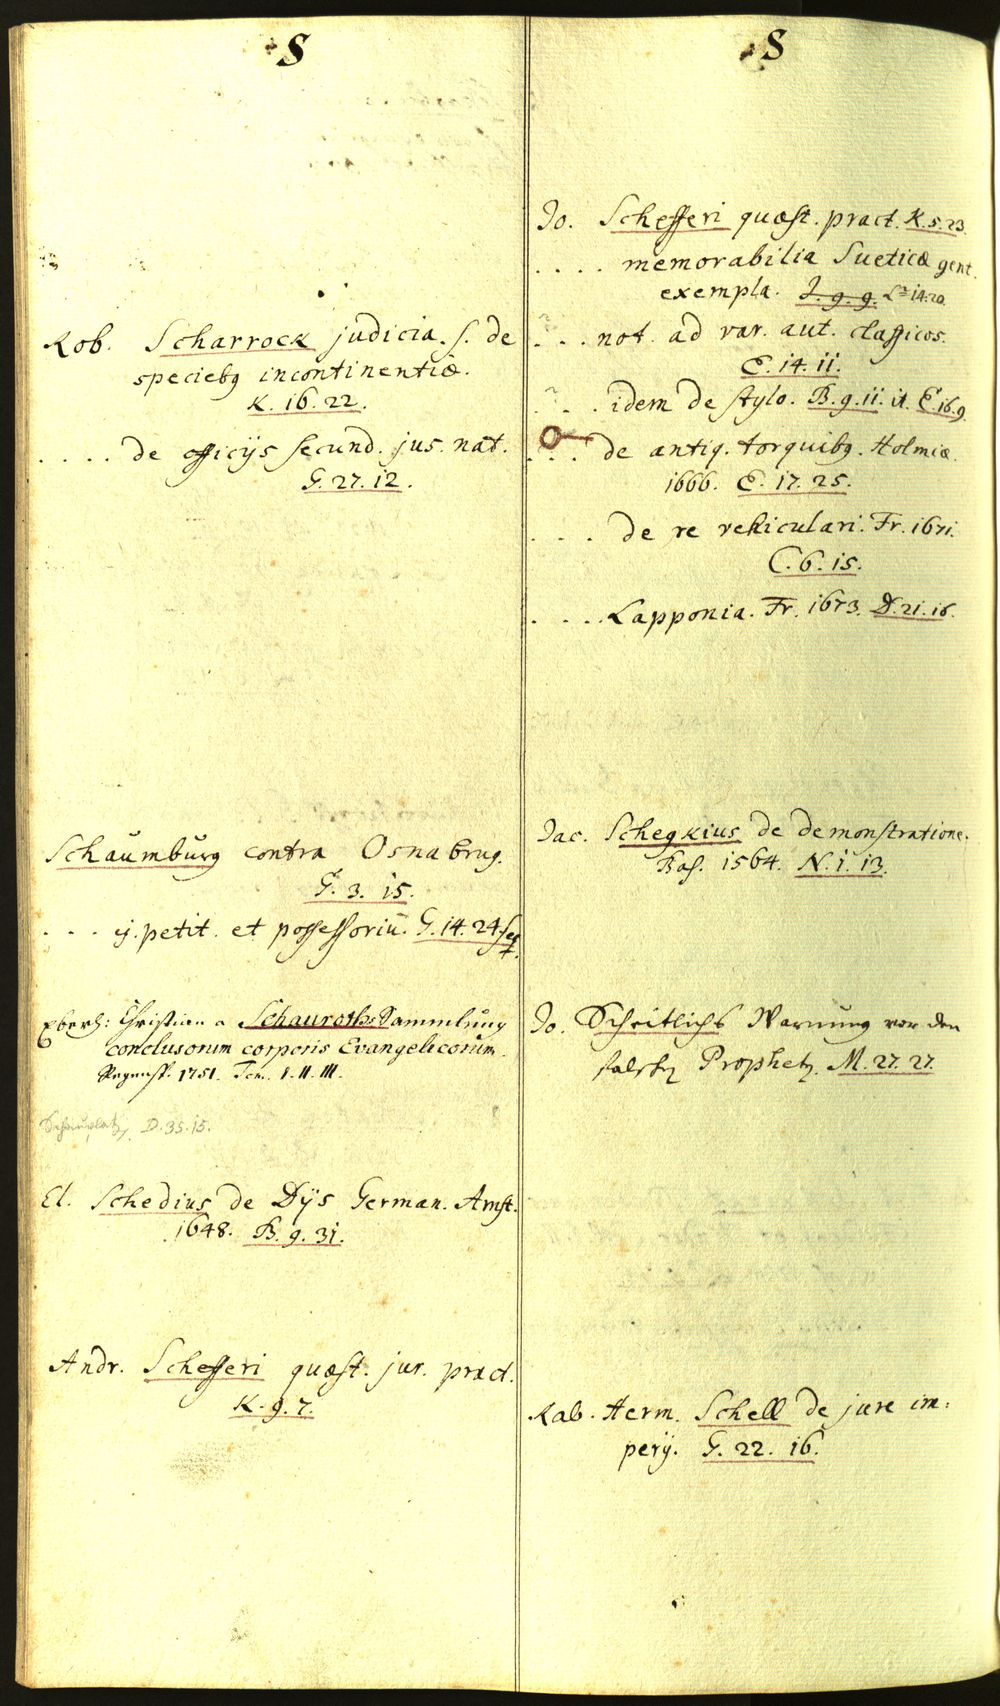 S
Rob. Scharrock judicia. s. de
speciebq incontinentiæ.
K. 16. 22.
. . . . de officijs secund. jus. nat.
G. 27. 12.
Schaumburg contra Osnabrug.
G. 3. 15.
. . . ij. petit. et possessoriū. G. 14. 24. seq.
Eberh: Christian a Schauroths Sammlung
conclusorum corporis Evangelicorum.
Regensp. 1751. Tom. I. II. III.
Schauplatz, D. 35. 15.
El. Schedius de Dijs German. Amst.
1648. B. 9. 31.
Andr. Schefferi quæst. jur. pract.
K. 9. 7.
S
Jo. Schefferi quæst. pract. K. 5. 23.
. . . . memorabilia Sueticæ gent.
exempla. J. 9. 9. L. 14. 20.
. . . not. ad var. aut. classicos.
E. 14. 11.
. . . idem de stylo. B. 9. 11. it. E. 16. 9.
. . . de antiq. torquibq. Holmiæ.
1666. E. 17. 25.
. . . de re vehiculari. Fr. 1671.
C. 6. 15.
. . . . Lapponia. Fr. 1673. D. 21. 16.
Jac. Schegkius de demonstratione.
Bas. 1564. N. 1. 13.
Jo. Scheitlichs Warnung vor den
falschen Prophetz. M. 27. 27.
Rab. Herm. Schell de jure im:
perij. G. 22. 16.